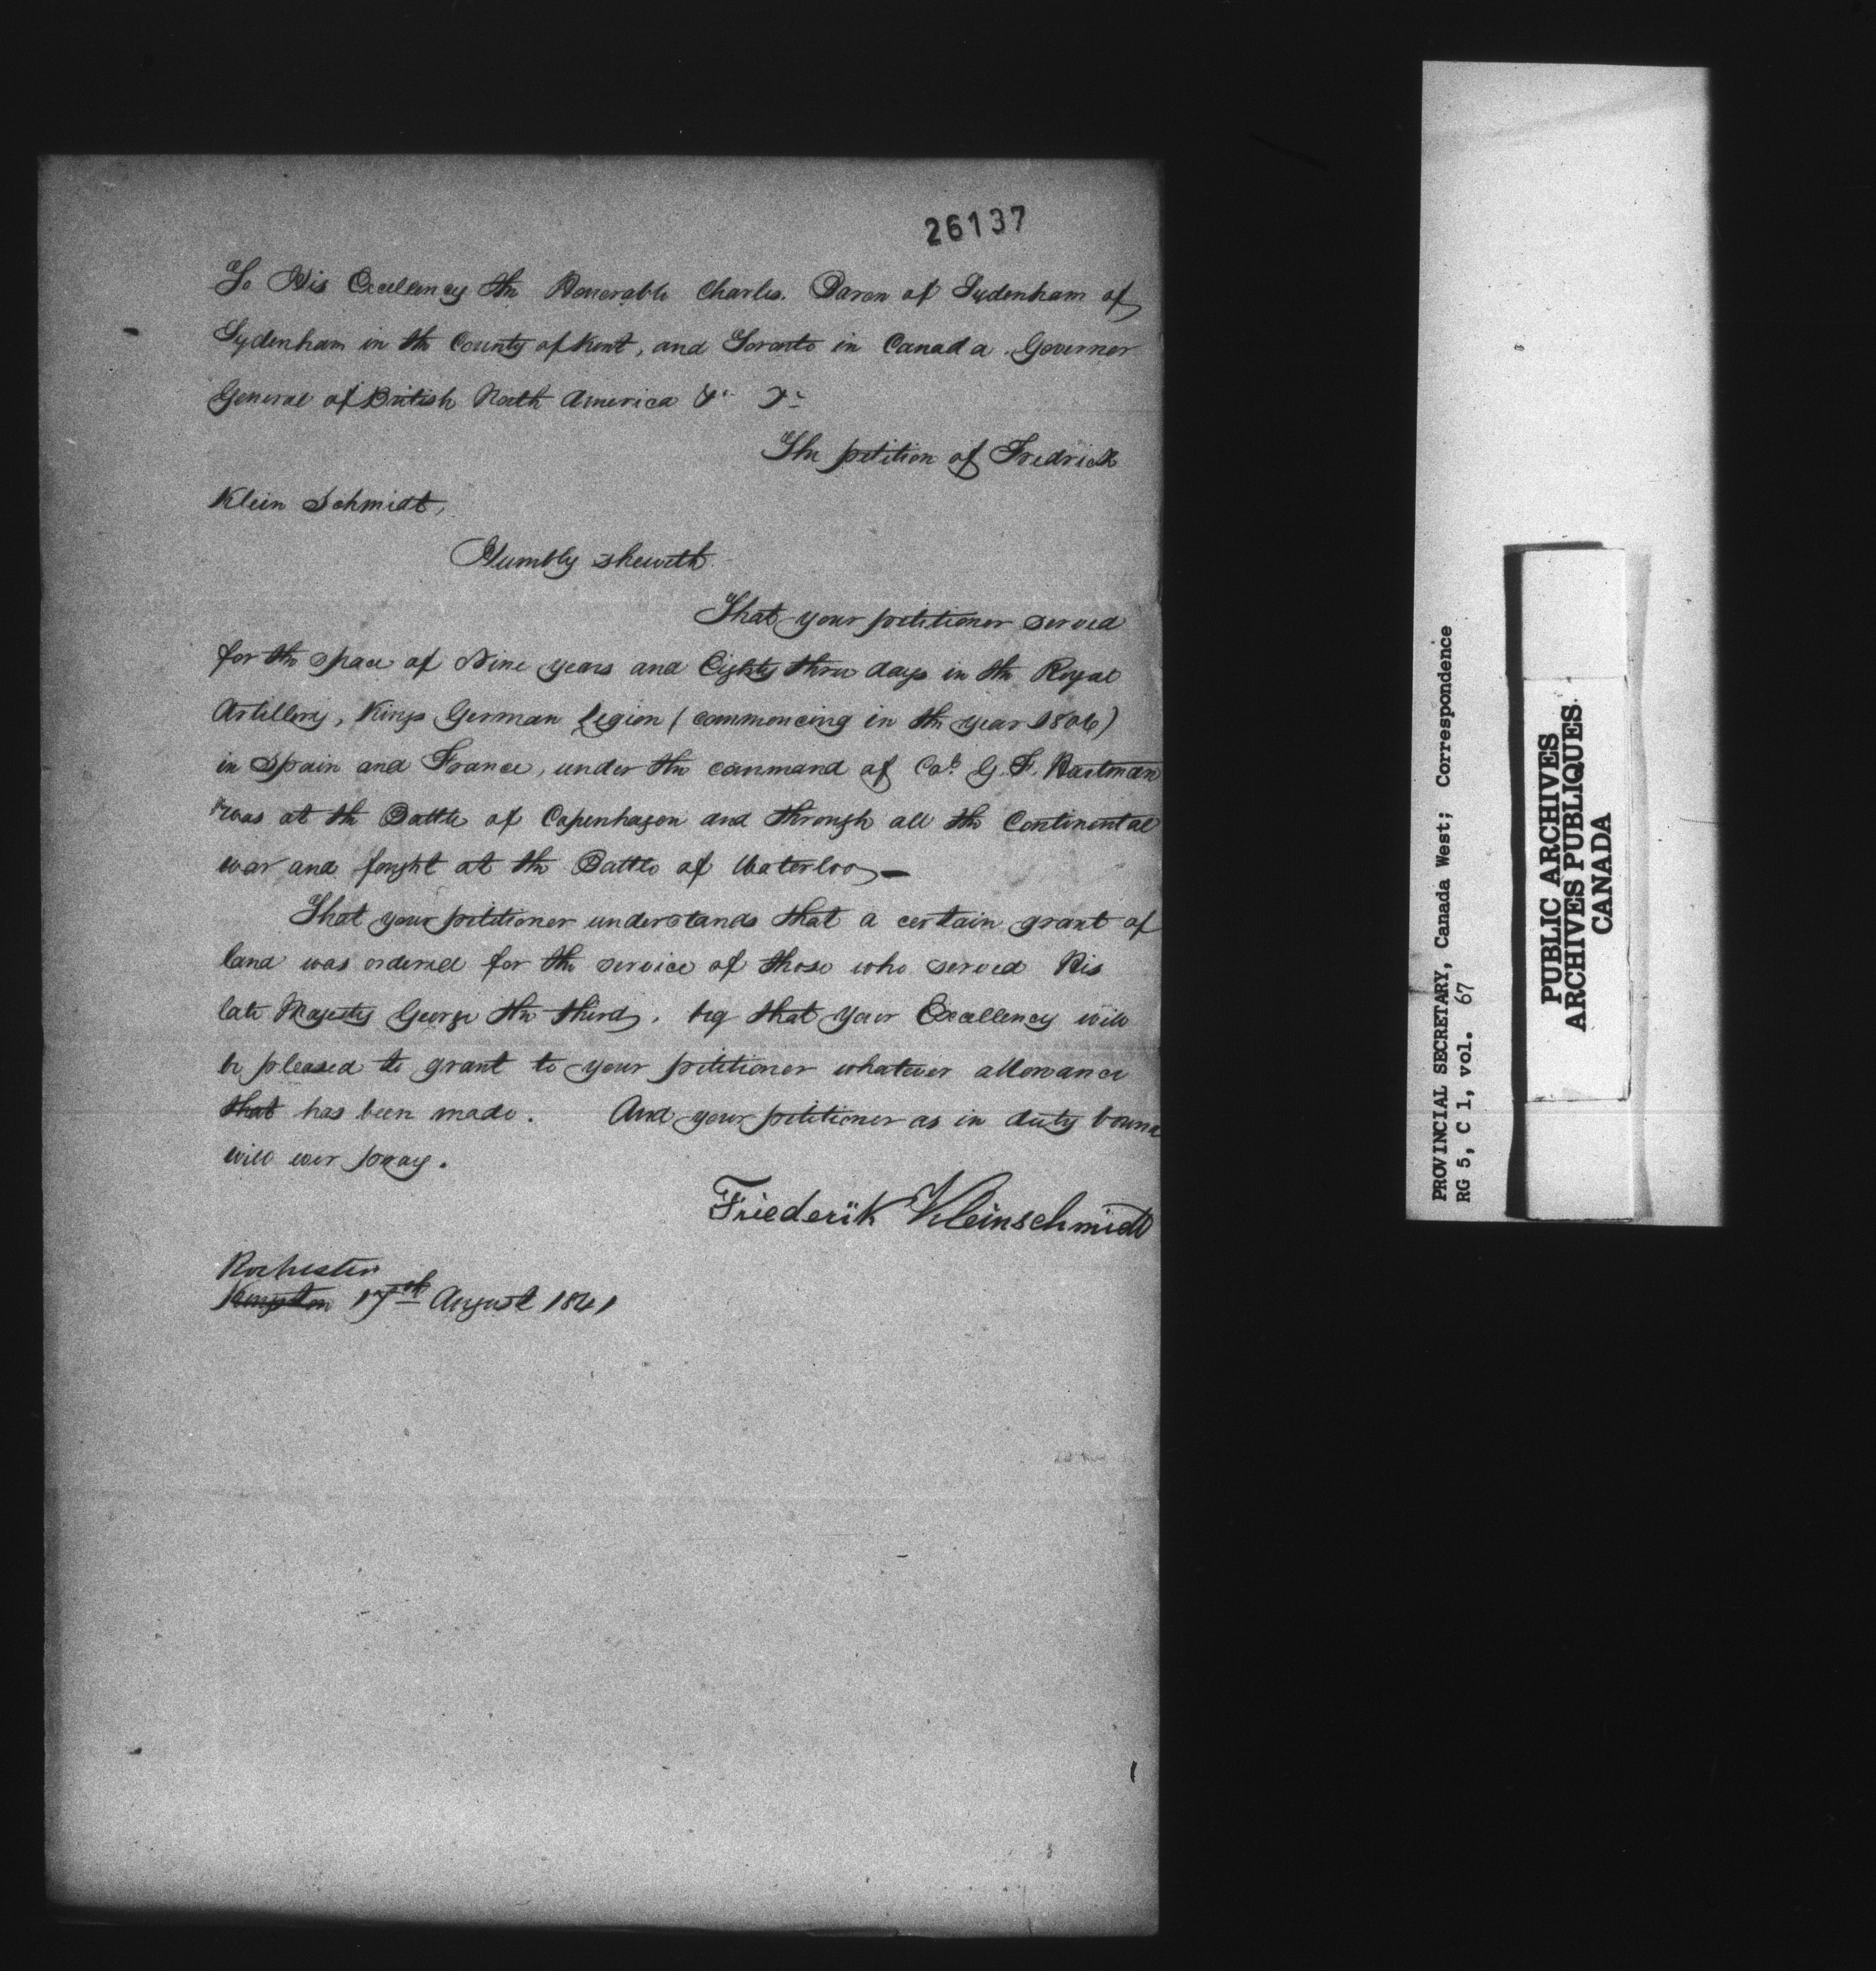 26137
To His Excellency the Honorable Charles. Baron of Sydenham of
Sydenham in the County of Kent, and Toronto in Canada. Governor
General of British North America &c &c
The petition of Fredrick
Klein Schmidt,
Humbly sheweth.
That your petitioner served
for the space of Nine years and Eighty three days in the Royal
Artillery, Kings German Legion (commencing in the year 1806)
in Spain and France, under the command of Col. G. F. Hartman
was at the Battle of Copenhagen and through all the Continental
war and fought at the Battle of Waterloo —
That your petitioner understands that a certain grant of
land was ordered for the service of those who served His
late Majesty George the third, beg that your Excellency will
be pleased to grant to your petitioner whatever allowance
that has been made. And your petitioner as in duty bound
will ever pray.
Friederik Kleinschmidt
Rochester
Kingston 17th August 1841
PROVINCIAL SECRETARY, Canada West; Correspondence
RG 5, C 1, vol. 67
PUBLIC ARCHIVES
ARCHIVES PUBLIQUES
CANADA